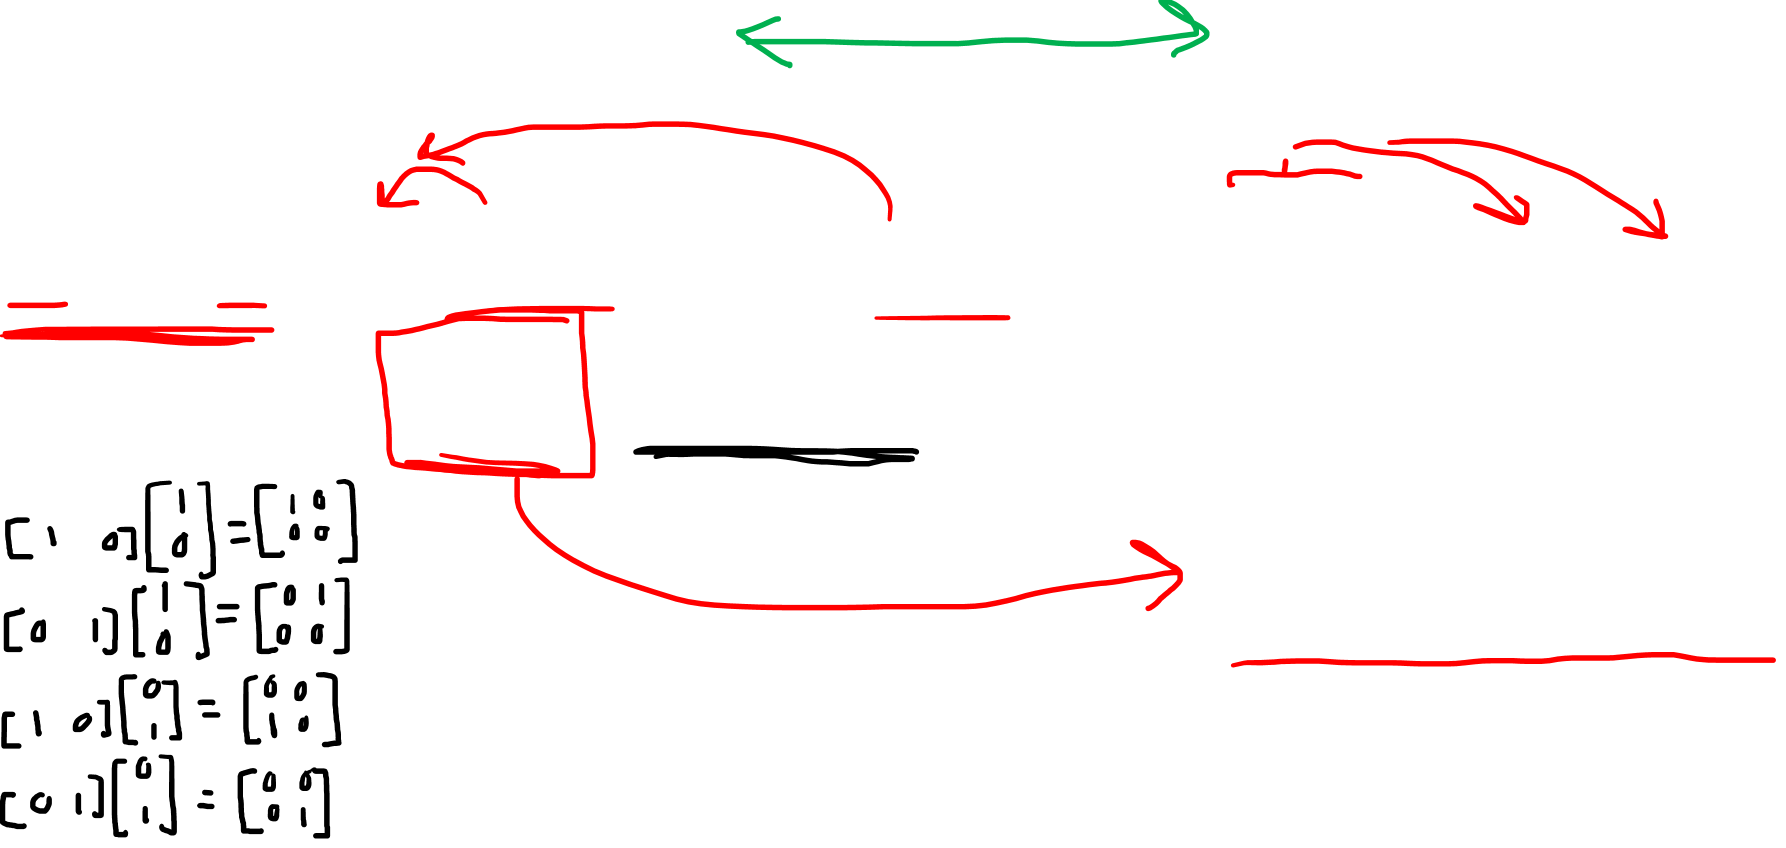 [1 0][1 0] = [1 0 0 0]
[0 1][1 0] = [0 1 0 0]
[1 0][0 1] = [0 0 1 0]
[0 1][0 1] = [0 0 0 1]